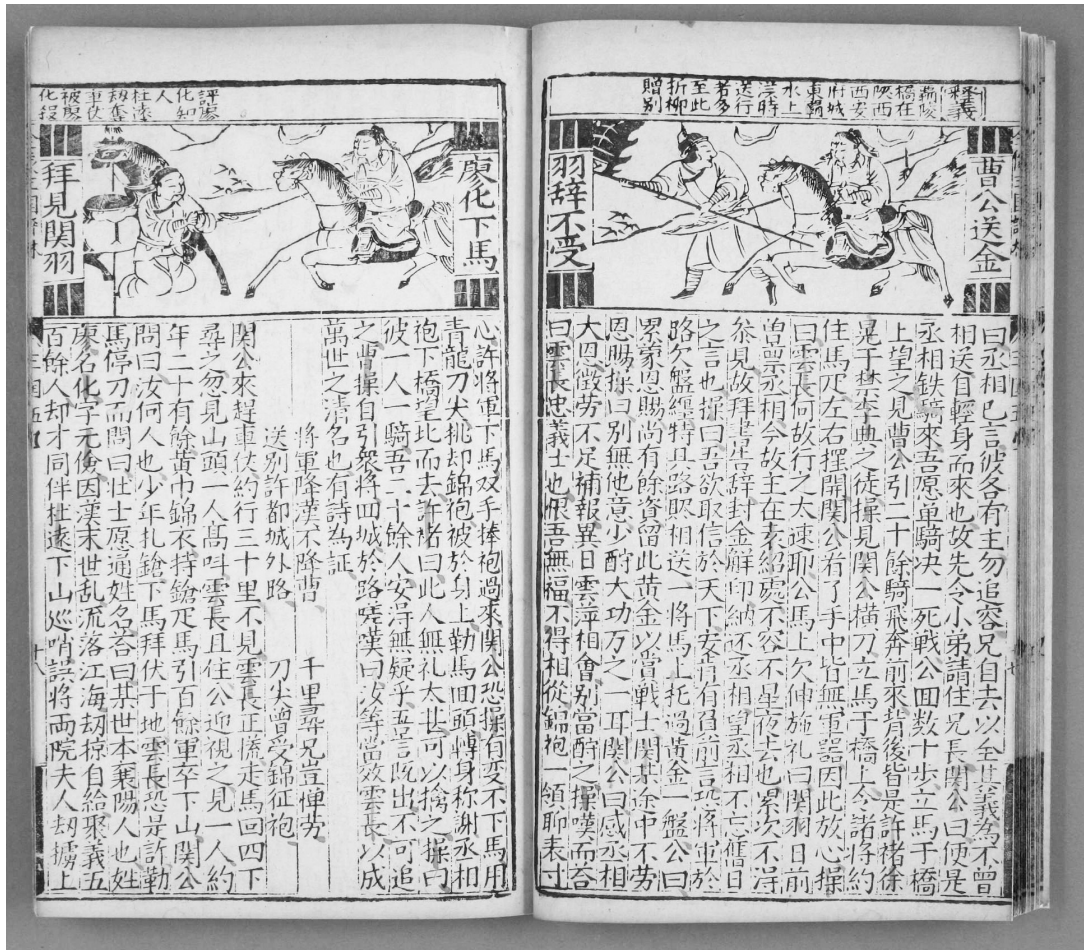 釈義
霸陵
橋在
陝西
西安
府城
東霸
水上
漢時
送行
者多
至此
折柳
贈別
曹公送金
羽辞不受
曰丞相已言彼各有主勿追容兄自去以全其義為不曾
相送自輕身而來也故先令小弟請住兄長関公曰便是
丞相鉄騎來吾愿单騎决一死戰公囬数十歩立馬于橋
上望之見曹公引二十餘騎飛奔前來背後皆是許褚徐
晃于禁李典之徒操見関公横刀立馬于橋上令諸將約
住馬疋左右擺開関公看了手中皆無軍器因此放心操
曰雲長何故行之太速耶公馬上欠伸施礼曰関羽日前
曽禀丞相今故主在袁紹處不容不星夜去也累次不得
叅見故拜書告辞封金觧印納还丞相望丞相不忘舊日
之言也操曰吾欲取信於天下安肯有負前言㤀將軍於
路欠盤纏特具路賍相送一將馬上托過黃金一盤公曰
累蒙恩賜尚有餘資留此黄金以當戰士関某途中不劳
恩賜操曰别無他意少酧大功万之一耳関公曰感丞相
大恩微劳不足補報異日雲萍相會别當酧之操嘆而答
曰雲長忠義士也恨吾無福不得相從錦袍一領聊表寸
評廖
化知
人
杜遠
刼奪
車仗
被廖
化殺
廖化下馬
拜見関羽
心許將軍下馬双手捧袍過來関公恐操有变不下馬用
青龍刀尖挑却錦袍被於身上勒馬囬頭轉身称謝丞相
袍下橋望北而去許褚曰此人無礼太甚可以擒之操曰
彼一人一騎吾二十餘人安得無疑乎吾言既出不可追
之曹操自引衆將囬城於路嘆曰汝等當效雲長以成
萬世之清名也有詩為証
將軍降漢不降曹　千里尋兄豈憚劳
送别許都城外路　刀尖曽受錦征袍
関公來趕車仗約行三十里不見雲長正慌走馬回四下
尋之忽見山頭一人髙叫雲長且住公迎視之見一人約
年二十有餘黄巾錦衣持鎗疋馬引百餘軍卒下山関公
問曰汝何人也少年扎鎗下馬拜伏于地雲長恐是許勒
馬停刀而問曰壮士愿通姓名答曰某世本襄陽人也姓
廖名化字元儉因漢末世乱流落江海刼掠自給聚義五
百餘人却才同伴杜遠下山巡哨誤將両院夫人刼擄上
三国五
十八